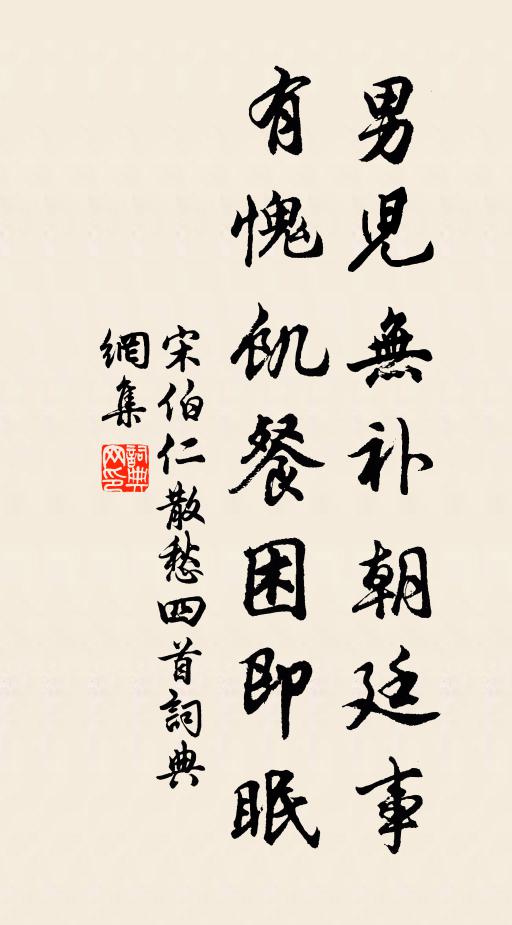 男児無补朝廷事
有愧飢餐困即眠
宋伯仁散愁四首詞典
網集
詞典
网印